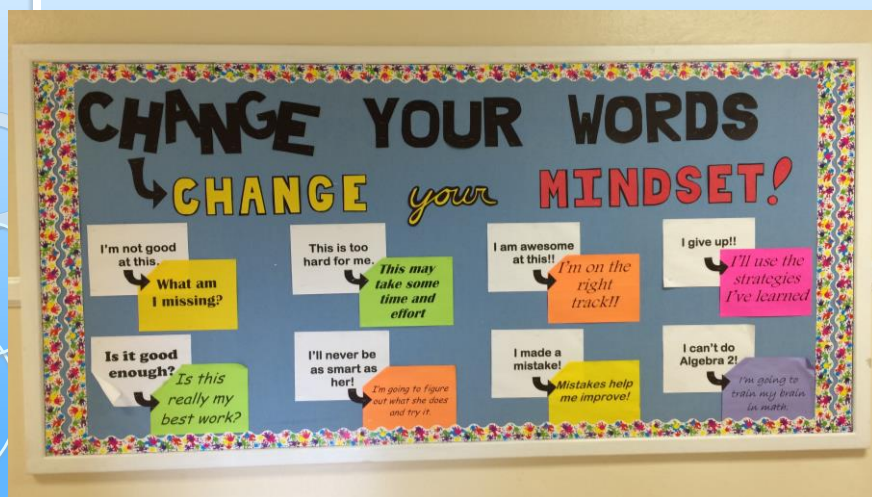 CHANGE YOUR WORDS
CHANGE your MINDSET!
I'm not good
at this.
What am
I missing?
This is too
hard for me.
This may
take some
time and
effort
I am awesome
at this!!
I'm on the
right
track!!
I give up!!
I'll use the
strategies
I've learned
Is it good
enough?
Is this
really my
best work?
I'll never be
as smart as
her!
I'm going to figure
out what she does
and try it.
I made a
mistake!
Mistakes help
me improve!
I can't do
Algebra 2!
I'm going to
train my brain
in math